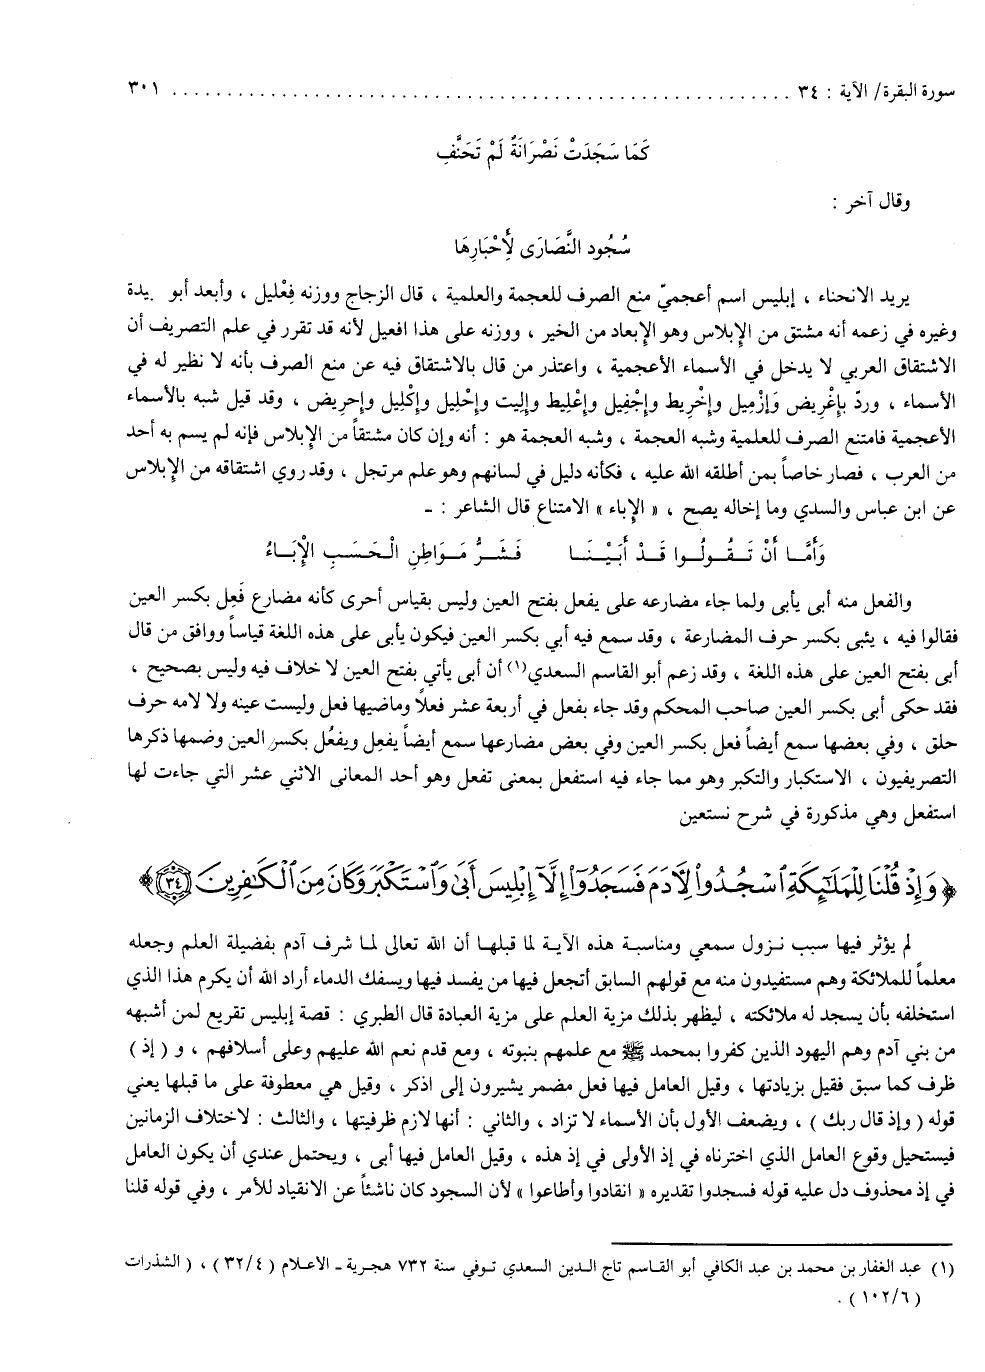 سورة البقرة/ الآية : ٣٤ ............................................................ ٣٠١
كَمَا سَجَدَتْ نَصْرَانَةٌ لَمْ تَحَنَّفِ
وقال آخر :
سُجُود النَّصَارَى لأَحْبَارِهَا
يريد الانحناء ، إبليس اسم أعجميّ منع الصرف للعجمة والعلمية ، قال الزجاج ووزنه فِعْليل ، وأبعد أبو يدة
وغيره في زعمه أنه مشتق من الإبلاس وهو الإبعاد من الخير ، ووزنه على هذا افعيل لأنه قد تقرر في علم التصريف أن
الاشتقاق العربي لا يدخل في الأسماء الأعجمية ، واعتذر من قال بالاشتقاق فيه عن منع الصرف بأنه لا نظير له في
الأسماء ، وردّ بإغْريض وَإزْميل وإخْريط وإجْفيل وإعْليط وإليت وإحْليل وإكْليل وإحريض ، وقد قيل شبه بالأسماء
الأعجمية فامتنع الصرف للعلمية وشبه العجمة ، وشبه العجمة هو : أنه وإن كان مشتقاً من الإبلاس فإنه لم يسم به أحد
من العرب ، فصار خاصاً بمن أطلقه الله عليه ، فكأنه دليل في لسانهم وهو علم مرتجل ، وقد روي اشتقاقه من الإبلاس
عن ابن عباس والسدي وما إخاله يصح ، « الإباء » الامتناع قال الشاعر : ـ
وَأَمَّــا أَنْ تَــقُــولُــوا قَــدْ أَبَيْـنَــا فَـشَــرُّ مَـوَاطِنِ الْـحَسَـبِ الإِبَــاءُ
والفعل منه أبى يأبى ولما جاء مضارعه على يفعل بفتح العين وليس بقياس أحرى كأنه مضارع فَعِل بكسر العين
فقالوا فيه ، يئبى بكسر حرف المضارعة ، وقد سمع فيه أبي بكسر العين فيكون يأبى على هذه اللغة قياساً ووافق من قال
أبى بفتح العين على هذه اللغة ، وقد زعم أبو القاسم السعدي(١) أن أبى يأتي بفتح العين لا خلاف فيه وليس بصحيح ،
فقد حكى أبى بكسر العين صاحب المحكم وقد جاء بفعل في أربعة عشر فعلاً وماضيها فعل وليست عينه ولا لامه حرف
حلق ، وفي بعضها سمع أيضاً فعل بكسر العين وفي بعض مضارعها سمع أيضاً يفعِل ويفعُل بكسر العين وضمها ذكرها
التصريفيون ، الاستكبار والتكبر وهو مما جاء فيه استفعل بمعنى تفعل وهو أحد المعانى الاثني عشر التي جاءت لها
استفعل وهي مذكورة في شرح نستعين
﴿ وَإِذْ قُلْنَا لِلْمَلَٰٓئِكَةِ ٱسْجُدُوا۟ لِءَادَمَ فَسَجَدُوٓا۟ إِلَّآ إِبْلِيسَ أَبَىٰ وَٱسْتَكْبَرَ وَكَانَ مِنَ ٱلْكَٰفِرِينَ ﴿٣٤﴾ ﴾
لم يؤثر فيها سبب نزول سمعي ومناسبة هذه الآية لما قبلها أن الله تعالى لما شرف آدم بفضيلة العلم وجعله
معلماً للملائكة وهم مستفيدون منه مع قولهم السابق أتجعل فيها من يفسد فيها ويسفك الدماء أراد الله أن يكرم هذا الذي
استخلفه بأن يسجد له ملائكته ، ليظهر بذلك مزية العلم على مزية العبادة قال الطبري : قصة إبليس تقريع لمن أشبهه
من بني آدم وهم اليهود الذين كفروا بمحمد ﷺ مع علمهم بنبوته ، ومع قدم نعم الله عليهم وعلى أسلافهم ، و ( إذ )
ظرف كما سبق فقيل بزيادتها ، وقيل العامل فيها فعل مضمر يشيرون إلى اذكر ، وقيل هي معطوفة على ما قبلها يعني
قوله ( وإذ قال ربك ) ، ويضعف الأول بأن الأسماء لا تزاد ، والثاني : أنها لازم ظرفيتها ، والثالث : لاختلاف الزمانين
فيستحيل وقوع العامل الذي اخترناه في إذ الأولى في إذ هذه ، وقيل العامل فيها أبى ، ويحتمل عندي أن يكون العامل
في إذ محذوف دل عليه قوله فسجدوا تقديره « انقادوا وأطاعوا » لأن السجود كان ناشئاً عن الانقياد للأمر ، وفي قوله قلنا
(١) عبد الغفار بن محمد بن عبد الكافي أبو القاسم تاج الدين السعدي توفي سنة ٧٣٢ هجرية ـ الاعلام ( ٣٢/٤ ) ، ( الشذرات
١٠٢/٦ ) .